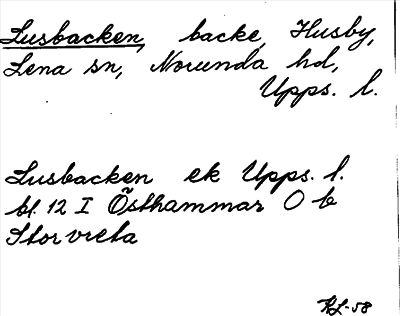 Lusbacken, backe, Husby,
Lena sn, Norunda hd,
Upps. l.
Lusbacken ek Upps. l.
bl. 12 I Östhammar O b
Storvreta
RL-58